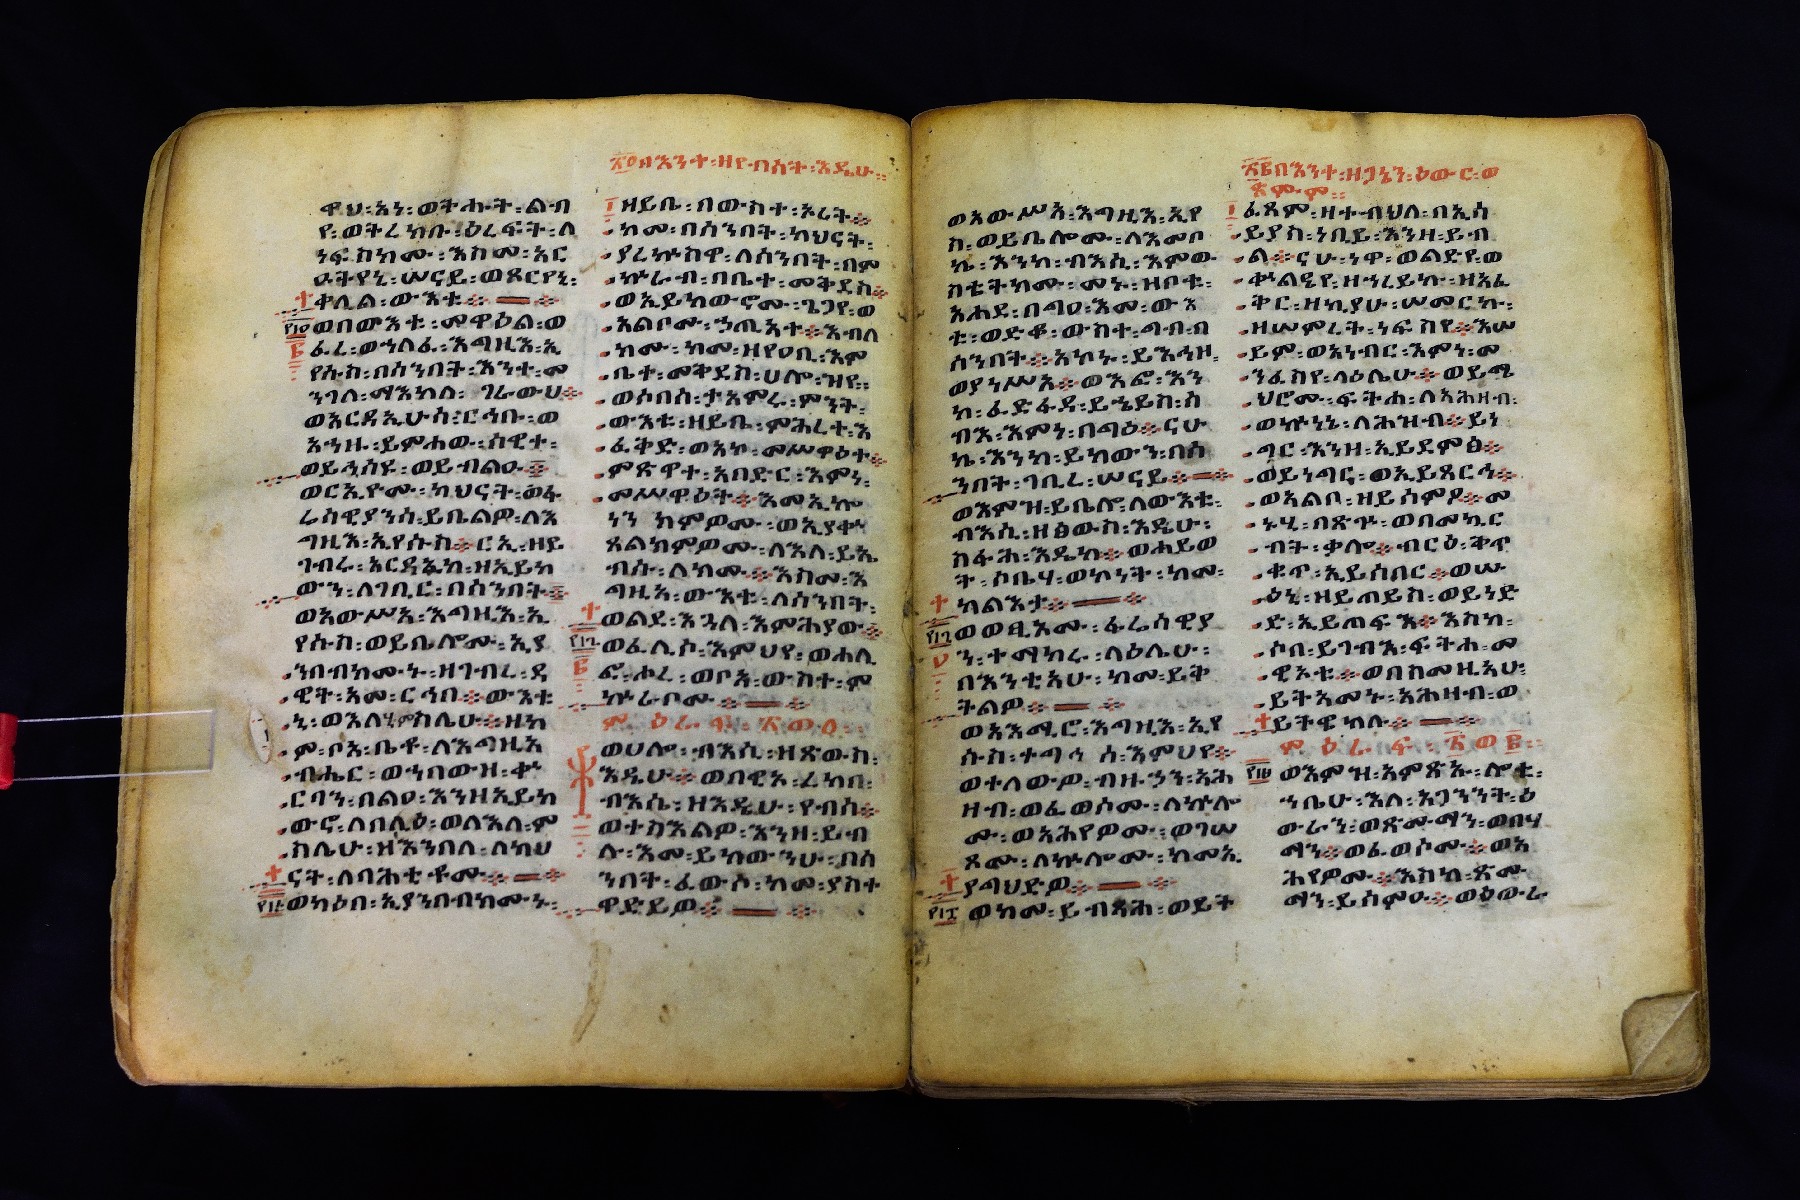 ዋህ፡አነ፡ወትሑት፡ልብ
የ፡ወትረክቡ፡ዕረፍት፡ለ
ነፍስክሙ፡እስመ፡አር
ዑትየኒ፡ሠናይ፡ወጾርየኒ፡
ቀሊል፡ውእቱ፨
ወበውእቱ፡መዋዕል፡ወ
ፈረ፡ወኀለፈ፡እግዚእ፡ኢ
የሱስ፡በሰንበት፡እንተ፡መ
ንገለ፡ማእከለ፡ገራውህ፨
ወአርዳኢሁሰ፡ርኅቡ፡ወ
አኀዙ፡ይምሐው፡ሰዊተ፡
ወይኂስዩ፡ወይብልዑ፨
ወርኢዮሙ፡ካህናት፡ወፋ
ሬስዊያንሰ፡ይቤልዎ፡ለእ
ግዚእ፡ኢየሱስ፨ርኢ፡ዘይ
ገብሩ፡አርዳኢከ፡ዘኢይከ
ውን፡ለገቢር፡በሰንበት፨
ወአውሥአ፡እግዚእ፡ኢ
የሱስ፡ወይቤሎሙ፡ኢያ
ንበብክሙኑ፡ዘገብረ፡ዳ
ዊት፡አመ፡ርኅበ፨ውእቱ
ኒ፡ወእለ፡ምስሌሁ፨ዘከ
መ፡ቦአ፡ቤቶ፡ለእግዚአ
ብሔር፡ወኀበውዘ፡ቍ
ርባን፡በልዑ፡እንዘኢይከ
ውኖ፡ለበሊዕ፡ወለእለ፡ም
ስሌሁ፡ዘእንበለ፡ለካህ
ናት፡ለባሕቲቶሙ፨
ወካዕበ፡ኢያንበብክሙኑ፡
በእንተ፡ዘየብሰት፡እዴሁ።
ዘይቤ፡በውስተ፡ኦሪት፨
ከመ፡በሰንበት፡ካህናት፡
ያረኵስዋ፡ለሰንበት፡በም
ኵራብ፡በቤተ፡መቅደስ፨
ወኢይከውኖሙ፡ጌጋየ፡ወ
አልቦሙ፡ኃጢአተ፨እብለ
ክሙ፡ከመ፡ዘየዐቢ፡እም
ቤተ፡መቅደስ፡ሀሎ፡ዝየ፡
ወሶበሰ፡ታአምሩ፡ምንት፡
ውእቱ፡ዘይቤ፡ምሕረተ፡እ
ፈቅድ፡ወአኮ፡መሥዋዕተ፨
ምጽዋተ፡አበድር፡እምነ፡
መሥዋዕት፨እመ፡ኢኰ
ነን ክምዎሙ፡ወኢያቀ
ጸልክምዎሙ፡ለእለ፡ይኤ
ብሱ፡ለክሙ፨እስመ፡እ
ግዚአ፡ውእቱ፡ለሰንበት፡
ወልደ፡እጓለ፡እምሕያው፨
ወፈሊሶ፡እምህየ፡ወሐለ
ፎ፡ሖረ፡ወቦአ፡ውስተ፡ም
ኵራቦሙ፨
ምዕራፍ፡
ወሀሎ፡ብእሲ፡ዘጽውስ፡
እዴሁ፨ወበዊኦ፡ረከበ፡
ብእሴ፡ዘእዴሁ፡የብሰ፨
ወተስእልዎ፡እንዘ፡ይብ
ሉ፡እመ፡ይከውንሁ፡በሰ
ንበት፡ፈውሶ፡ከመ፡ያስተ
ዋድይዎ፨
ወአውሥአ፡እግዚእ፡ኢየ
ሱ፡ወይቤሎሙ፡ለእመቦ
ኬ፡እንከ፡ብእሲ፡እምው
ስቴትክሙ፡መኑ፡ዘቦቱ፡
አሐደ፡በግዐ፡እመ፡ውእ
ቱ፡ወድቆ፡ውስተ፡ግብብ
ሰንበት፨አኮኑ፡ይእኅዞ፡
ወያነሥአ፨ወእፎ፡እን
ከ፡ፈድፋደ፡ይኄይስ፡ሰ
ብእ፡እምነ፡በግዕ፨ናሁ
ኬ፡እንከ፡ይከውን፡በሰ
ንበት፡ገቢረ፡ሠናይ፨
ወእምዝ፡ይቤሎ፡ለውእቱ፡
ብእሲ፡ዘፅውስ፡እዴሁ፡
ስፋሕ፡እዴከ፨ወሐይወ
ት፡ሶቤሃ፡ወኮነት፡ከመ፡
ካልእታ፨
ወወፂኦሙ፡ፈሬሳዊያ
ን፡ተማከሩ፡ላዕሌሁ፡
በእንቲአሁ፡ከመ፡ይቅ
ትልዎ፨
ወአእሚሮ፡እግዚእ፡ኢየ
ሱስ፡ተግኅ ሰ፡እምህየ፨
ወተለውዎ፡ብዙኃን፡አሕ
ዛብ፡ወፈወሶሙ፡ለኵሎ
ሙ፡ወአሕየዎሙ፡ወገሠ
ጾሙ፡ለኵሎሙ፡ከመኢ
ያግህድዎ፨
ወከመ፡ይብጻሕ፡ወይት
በእንተ፡ዘጋኔን፡ዕውር፡ወ
ጽሙም።
ፈጸም፡ዘተብህለ፡በኢሳ
ይያስ፡ነቢይ፡እንዘ፡ይብ
ል፨ናሁ፡ነዋ፡ወልድየ፡ወ
ቍልዔየ፡ዘኀረይኩ፡ዘአፈ
ቅር፡ዘኪያሁ፡ሠመርኩ፡
ዘሠምረት፡ነፍስየ፨እሠ
ይም፡ወአነብር፡እምነ፡መ
ንፈስየ፡ላዕሌሁ፨ወይሜ
ህሮሙ፡ፍትሐ፡ለአሕዛብ፡
ወኵነኔ፡ለሕዝብ፨ይነ
ግር፡እንዘ፡ኢይደምፅ፨
ወይነግር፡ወኢይጸርኅ፨
ወአልቦ፡ዘይሰምዖ፨መ
ኑሂ፡በጽጐ፡ወበመኳር
ብት፡ቃሎ፨ብርዕ፡ቅጥ
ቁጥ፡ኢይሰበር፨ወሡ
ዕኒ፡ዘይጠይስ፡ወይነድ
ድ፡ኢይጠፍእ፨እስከ፡
ሶበ፡ይገብእ፡ፍትሐ፡መ
ዊኦቱ፨ወበስመዚአሁ፡
ይትአመኑ፡አሕዛብ፡ወ
ይትዌከሉ፨
ምዕራፍ፡
ወእምዝ፡አምጽኡ፡ሎቱ፡
ኀቤሁ፡እለ፡አጋንንት፡ዕ
ውራን፡ወጽሙማን፡ወበሃ
ማን፨ወፈወሶሙ፨ወአ
ሕየዎሙ፨እስከ፡ጽሙ
ማን፡ይሰምዑ፨ወዕውራ